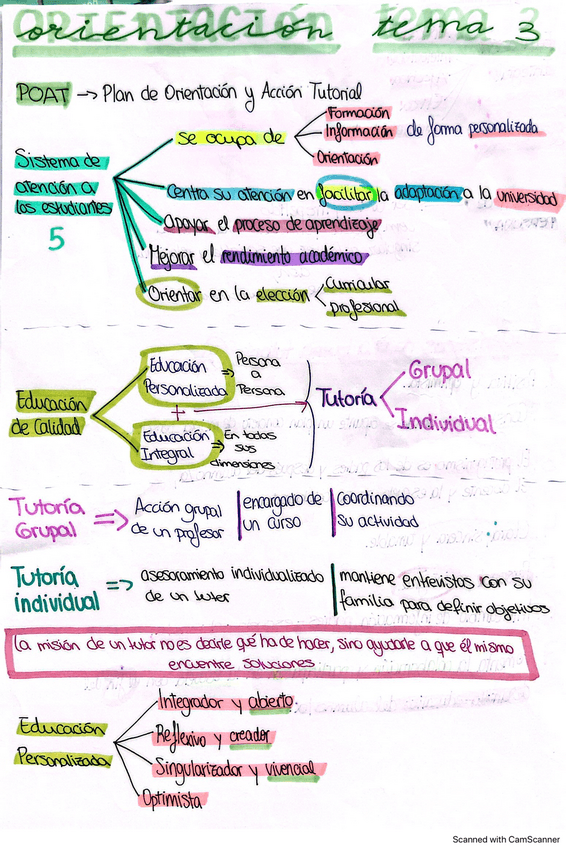 orientación tema 3
POAT → Plan de Orientación y Acción Tutorial
Sistema de
atención a
los estudiantes
5
se ocupa de
Formación
Información
Orientación
de forma personalizada
Centra su atención en facilitar la adaptación a la universidad
Apoyar el proceso de aprendizaje
Mejorar el rendimiento académico
Orientar en la elección
Curricular
profesional
Educación
de Calidad
Educación
Personalizada
⇒ Persona
a
Persona
+
Educación
Integral
⇒ En todas
sus
dimensiones
Tutoría
Grupal
Individual
Tutoría
Grupal
⇒ Acción grupal
de un profesor
encargado de
un curso
coordinando
su actividad
Tutoría
individual
⇒ asesoramiento individualizado
de un tuter
mantiene entrevistas con su
familia para definir objetivos
La misión de un tutor no es decirle qué ha de hacer, sino ayudarle a que él mismo
encuentre soluciones
Educación
Personalizada
Integrador y abierto
Reflexivo y creador
Singularizador y vivencial
Optimista
Scanned with CamScanner